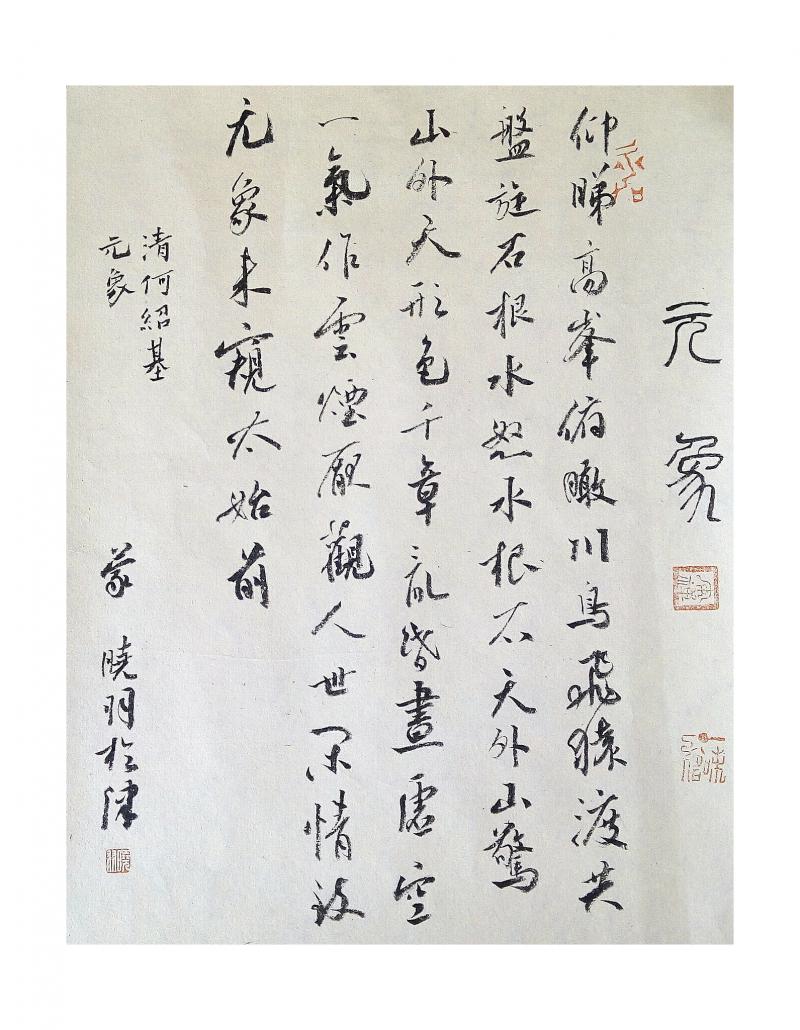 元象
仰睇高峯俯瞰川鳥飛猿渡共
盤旋石根水怒水根石天外山驚
山外天形色千章亂昏晝虛空
一氣作雲煙厭觀人世閑情
元象未窺太始前
清何紹基
元象
曉羽於津